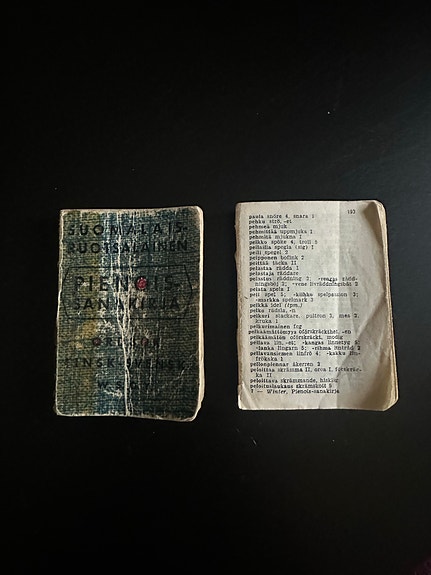 SUOMALAIS-
RUOTSALAINEN
PIENOIS-
SANAKIRJA
193
paula snöre 4, snara 1
pehku strö, -et
pehmeä mjuk
pehmittää uppmjuka 1
pehmitä mjukna 1
peikko spöke 4, troll 5
peilailla spegla (sig) 1
peili spegel 2
peipponen bofink 2
peittää täcka II
pelastaa rädda 1
pelastaja räddare
pelastus räddning 2; -rengas rädd-
ningsboj 2; -vene livräddningsbåt 2
pelata spela 1
peli spel 5; -kiihko spelpassion 3;
-markka spelmark 3
pelkkä idel
pelko rädsla, -n
pelkuri stackare, pultron 3; mes 2,
kruka 1
pelkurimainen feg
pelkäämättömyys oförskräckthet, -en
pelkäämätön oförskräckt, modig
pellava lin, -et; -kangas linnetyg
-lanka lingarn 5; -rihma lintråd 2
pellavansiemen linfrö 4; -kakku lin-
frökaka 1
pellonpiennar åkerren 2
peloittaa skrämma II, oroa 1, förskräc-
ka II
peloittava skrämmande, hisklig
peloituslaukaus skrämskott 5
7 — Winter, Pienois-sanakirja